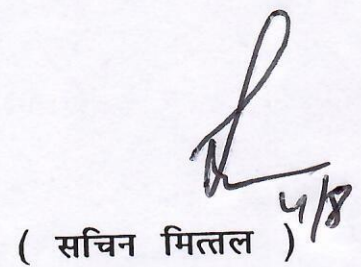 4/8
( सचिन मित्तल )